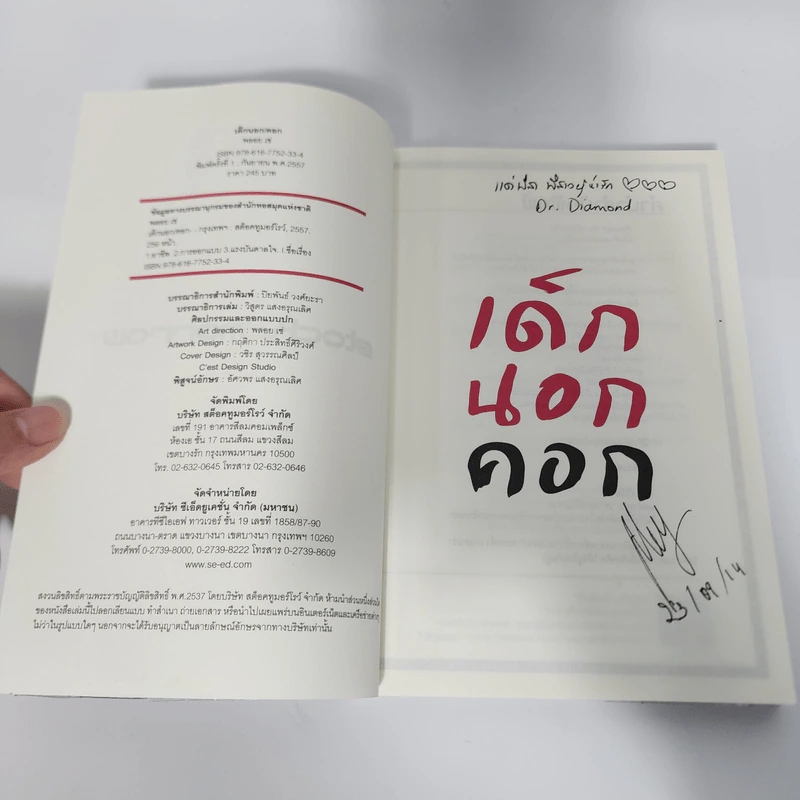 เด็กนอกคอก
พลอย เซ่
ISBN 978-616-7752-33-4
พิมพ์ครั้งที่ 1 : กันยายน พ.ศ.2557
ราคา 245 บาท
ข้อมูลทางบรรณานุกรมของสำนักหอสมุดแห่งชาติ
พลอย เซ่
เด็กนอกคอก.- กรุงเทพฯ : สต็อคทูมอร์โรว์, 2557.
256 หน้า.
1.อาชีพ. 2.การออกแบบ 3.แรงบันดาลใจ. I.ชื่อเรื่อง
ISBN 978-616-7752-33-4
บรรณาธิการสำนักพิมพ์ : ปิยพันธ์ วงศ์ยะรา
บรรณาธิการเล่ม : วิสูตร แสงอรุณเลิศ
ศิลปกรรมและออกแบบปก
Art direction : พลอย เซ่
Artwork Design : กฤติกา ประสิทธิ์ศิริวงศ์
Cover Design : วชิร สุวรรณศิลป์
C'est Design Studio
พิสูจน์อักษร : อัศวพร แสงอรุณเลิศ
จัดพิมพ์โดย
บริษัท สต็อคทูมอร์โรว์ จำกัด
เลขที่ 191 อาคารสีลมคอมเพล็กซ์
ห้องเอ ชั้น 17 ถนนสีลม แขวงสีลม
เขตบางรัก กรุงเทพมหานคร 10500
โทร. 02-632-0645 โทรสาร 02-632-0646
จัดจำหน่ายโดย
บริษัท ซีเอ็ดยูเคชั่น จำกัด (มหาชน)
อาคารทีซีไอเอฟ ทาวเวอร์ ชั้น 19 เลขที่ 1858/87-90
ถนนบางนา-ตราด แขวงบางนา เขตบางนา กรุงเทพฯ 10260
โทรศัพท์ 0-2739-8000, 0-2739-8222 โทรสาร 0-2739-8609
www.se-ed.com
สงวนลิขสิทธิ์ตามพระราชบัญญัติลิขสิทธิ์ พ.ศ.2537 โดยบริษัท สต็อคทูมอร์โรว์ จำกัด ห้ามนำส่วนหนึ่งส่วนใด
ของหนังสือเล่มนี้ไปลอกเลียนแบบ ทำสำเนา ถ่ายเอกสาร หรือนำไปเผยแพร่บนอินเตอร์เน็ตและเครือข่ายต่างๆ
ไม่ว่าในรูปแบบใดๆ นอกจากจะได้รับอนุญาตเป็นลายลักษณ์อักษรจากทางบริษัทเท่านั้น
Dr. Diamond
เด็ก
นอก
คอก
23/09/14